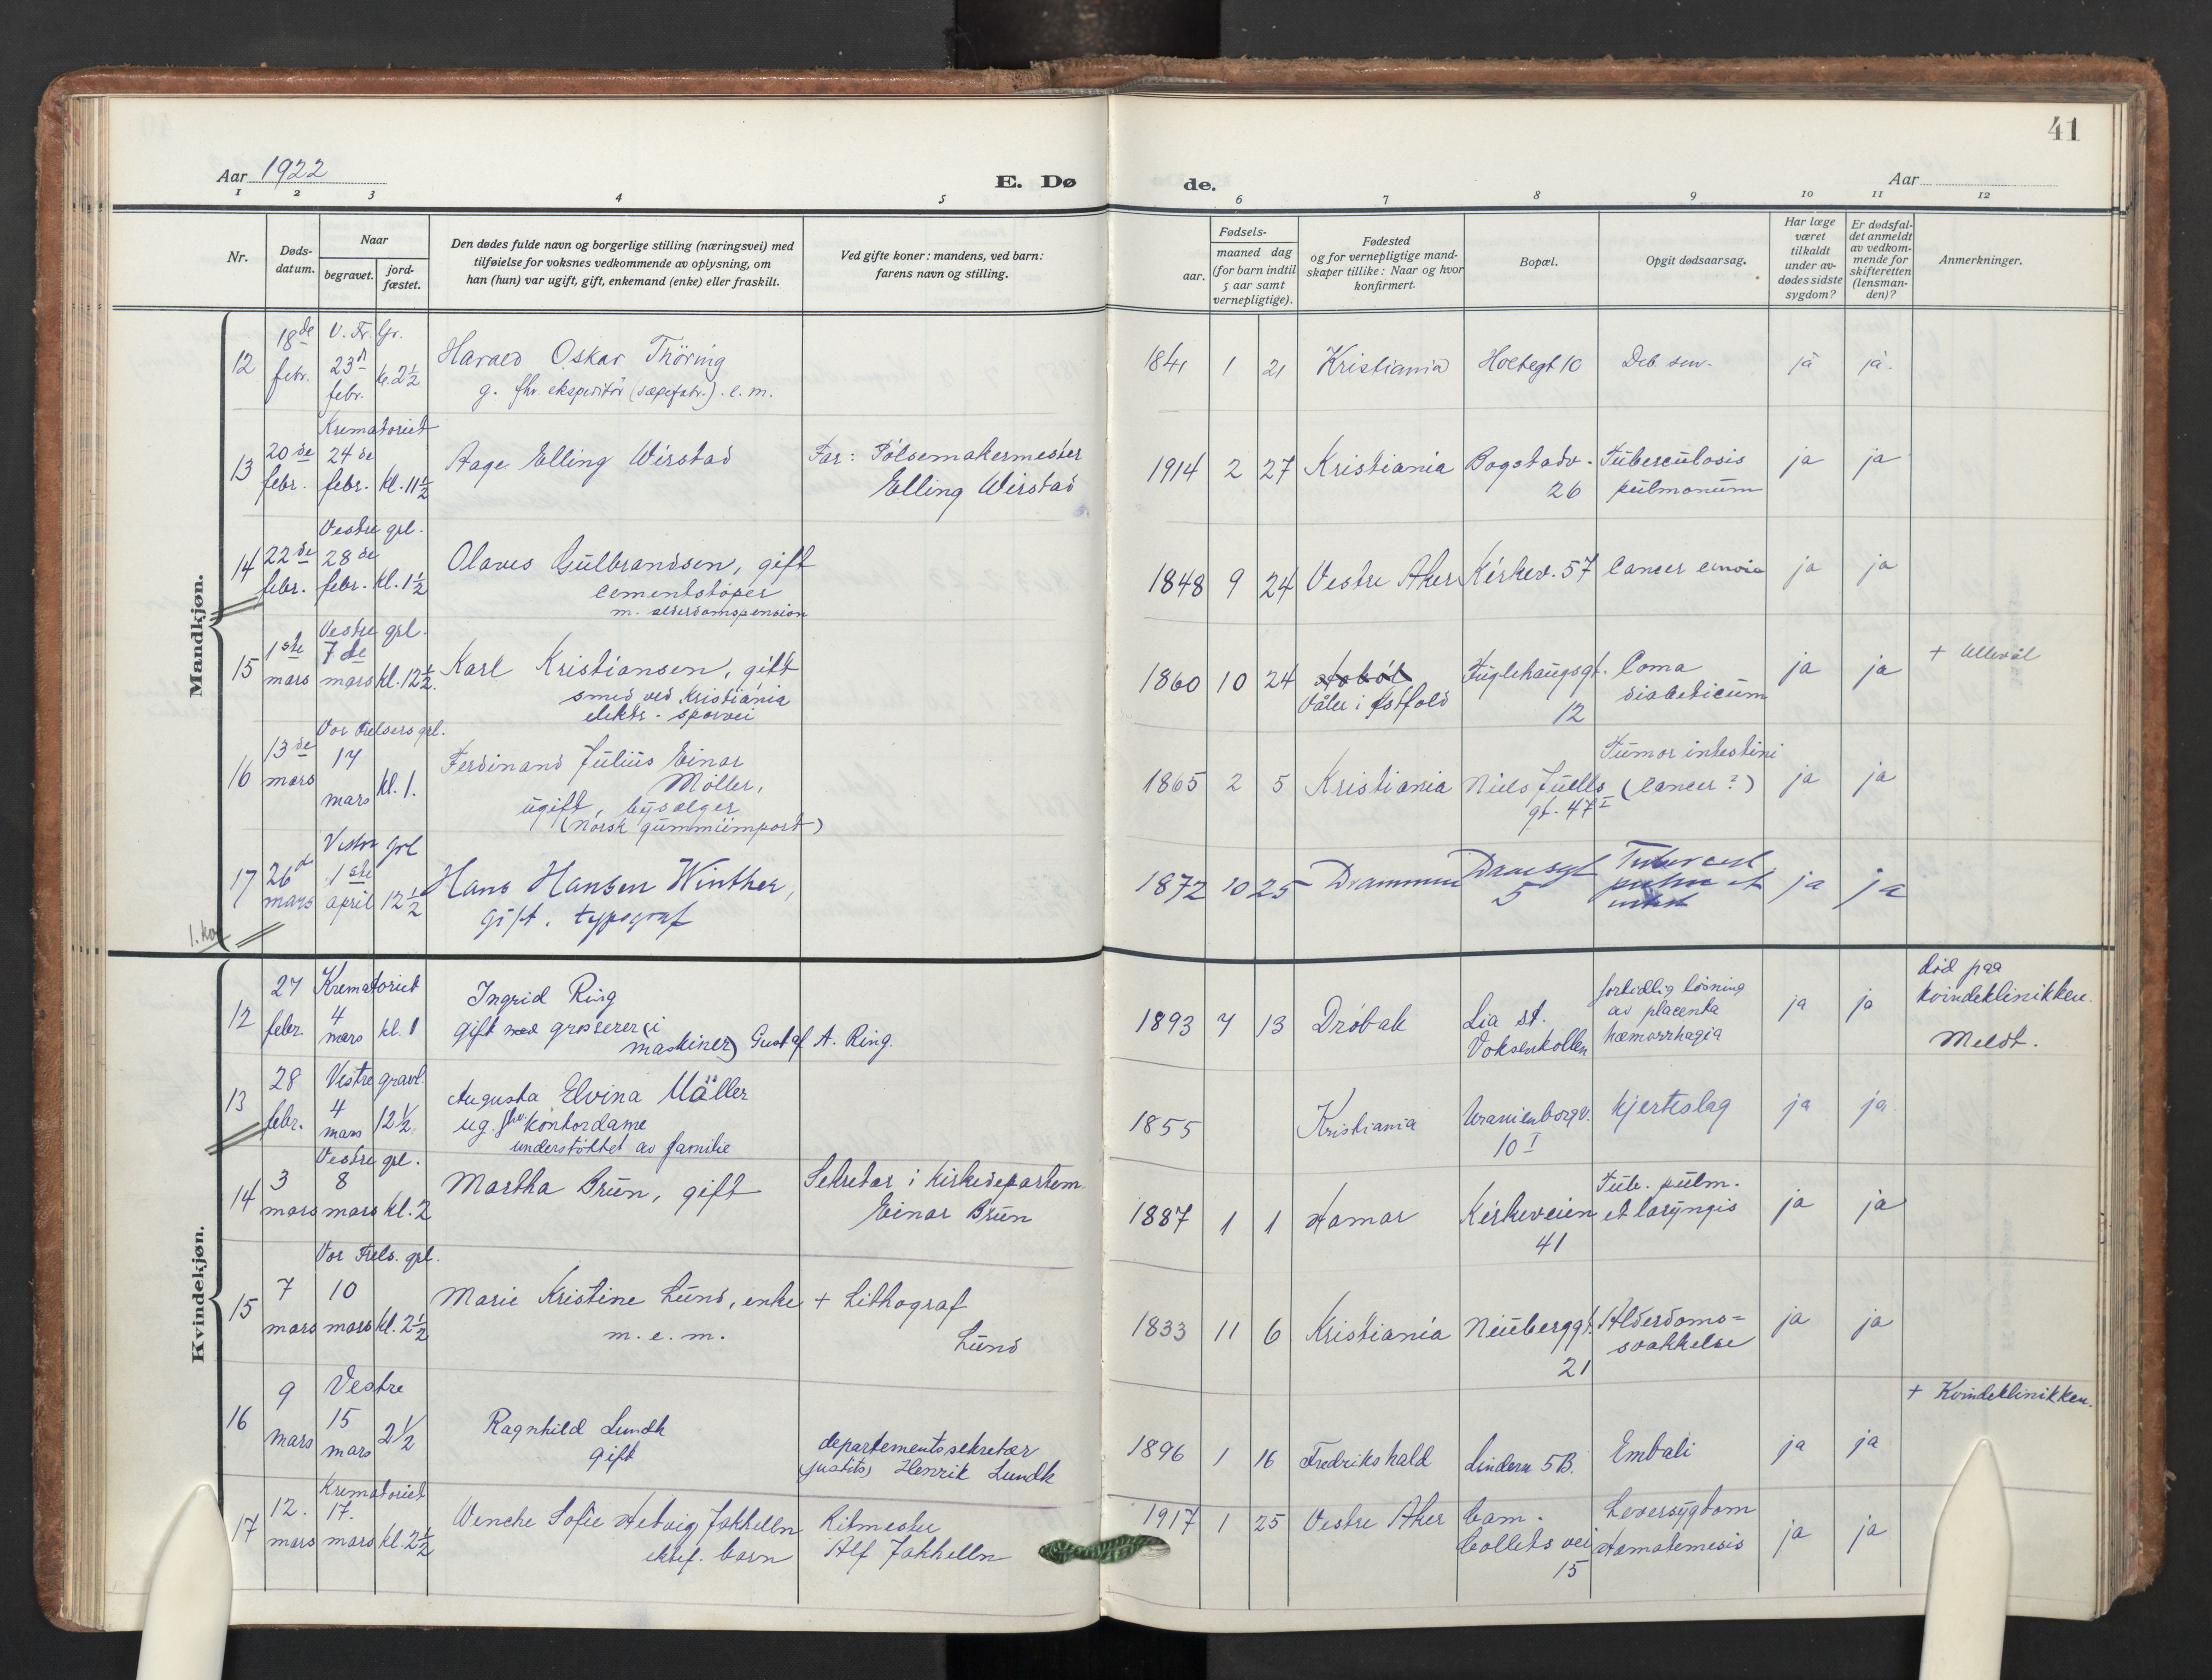 41
Aar 1922
E. Dø
de.
Aar
1 2 3 4 5 6 7 8 9 10 11 12
Nr.
Døds-
datum.
Naar
begravet.
jord-
fæstet.
Den dødes fulde navn og borgerlige stilling (næringsvei) med
tilføielse for voksnes vedkommende av oplysning, om
han (hun) var ugift, gift, enkemand (enke) eller fraskilt.
Ved gifte koner: mandens, ved barn:
farens navn og stilling.
Fødsels-
aar.
maaned dag
(for barn indtil
5 aar samt
vernepligtige).
Fødested
og for vernepligtige mand-
skaper tillike: Naar og hvor
konfirmert.
Bopæl.
Opgit dødsaarsag.
Har læge
været
tilkaldt
under av-
dødes sidste
sygdom?
Er dødsfal-
det anmeldt
av vedkom-
mende for
skifteretten
(lensman-
den)?
Anmerkninger.
Mandkjøn.
12
18de
febr.
V. Fr. Gr.
23d
febr.
kl. 2 1/2
Harald Oskar Thöring
g. fhv. ekspeditör (sæpefabr.). e. m.
1841 1 21
Kristiania
Holtegt 10
Deb. sen.
ja
ja.
13
20de
febr.
Krematoriet
24de
febr.
kl. 11 1/2
Aage Elling Wirstad
Far: Pölsemakermester
Elling Wirstad
1914 2 27
Kristiania
Bogstadv.
26
Tuberculosis
pulmonum
ja
ja
14
22de
febr.
Vestre grl.
28de
febr.
kl. 1 1/2
Olaves Gulbrandsen, gift
cementstöper
m. alderdomspension
1848 9 24
Vestre Aker
Kirkev. 57
Cancer
ja
ja
15
1ste
mars
Vestre grl.
7de
mars
kl. 12 1/2.
Karl Kristiansen, gift
smed ved Kristiania
elektr. sporvei
1860 10 24
Våler i Østfold
Fuglehaugsgt.
12
Coma
diabeticum
ja
ja
+ Ullevål
16
13de
mars
Vor Frelsers grl.
17
mars
kl. 1.
Ferdinand Julius Einar
Möller,
ugift, bysælger
(norsk gummiimport)
1865 2 5
Kristiania
Niels Juells
gt. 47 I
Tumor intestini
(Cancer?)
ja
ja
17
26d
mars
Vestre grl
1ste
april
12 1/2
Hans Hansen Winther,
gift. typograf
1872 10 25
Drammen
Dramsgt
5
Tubercul
pulm et
ja
ja
1. kv
Kvindekjøn.
12
27
febr.
Krematoriet
4
mars
kl. 1
Ingrid Ring
gift med grosserer (i
maskiner) Gustaf A. Ring.
1893 7 13
Dröbak
Lia st.
Voksenkollen
fortidlig lösning
av placenta
hæmorrhagia
ja
ja
död paa
kvindeklinikken.
Meldt.
13
28
febr.
Vestre gravl.
4
mars
12 1/2
Augusta Elvina Möller
ug. fhv. kontordame
understöttet av familie
1855
Kristiania
Uranienborgv.
10 I
hjerteslag
ja
ja
14
3
mars
Vestre grl.
8
mars
kl. 2
Martha Brun, gift
Sekretær i Kirkedepartem.
Einar Brun
1887 1 1
Hamar
Kirkeveien
41
Tub. pulm.
et laryngis
ja
ja
15
7
mars
Vor Frels. grl.
10
mars
kl. 2 1/2
Marie Kristine Lund, enke
m. e. m.
+ Lithograf
Lund
1833 11 6
Kristiania
Neuberggt.
21
Alderdoms-
svakkelse
ja
ja
16
9
mars
Vestre
15
mars
2 1/2
Ragnhild Lundh
gift
departementssekretær
(justits) Henrik Lundh
1896 1 16
Fredrikshald
Lindern 5B.
Emboli
ja
ja
+ Kvindeklinikken.
17
12.
mars
Krematoriet
17.
mars
kl. 2 1/2
Wenche Sofie Hedvig Jakhelln
ektef. barn
Ritmester
Alf Jakhelln
1917 1 25
Vestre Aker
Cam.
Colletts vei
15
Leversygdom
Hæmatemesis
ja
ja